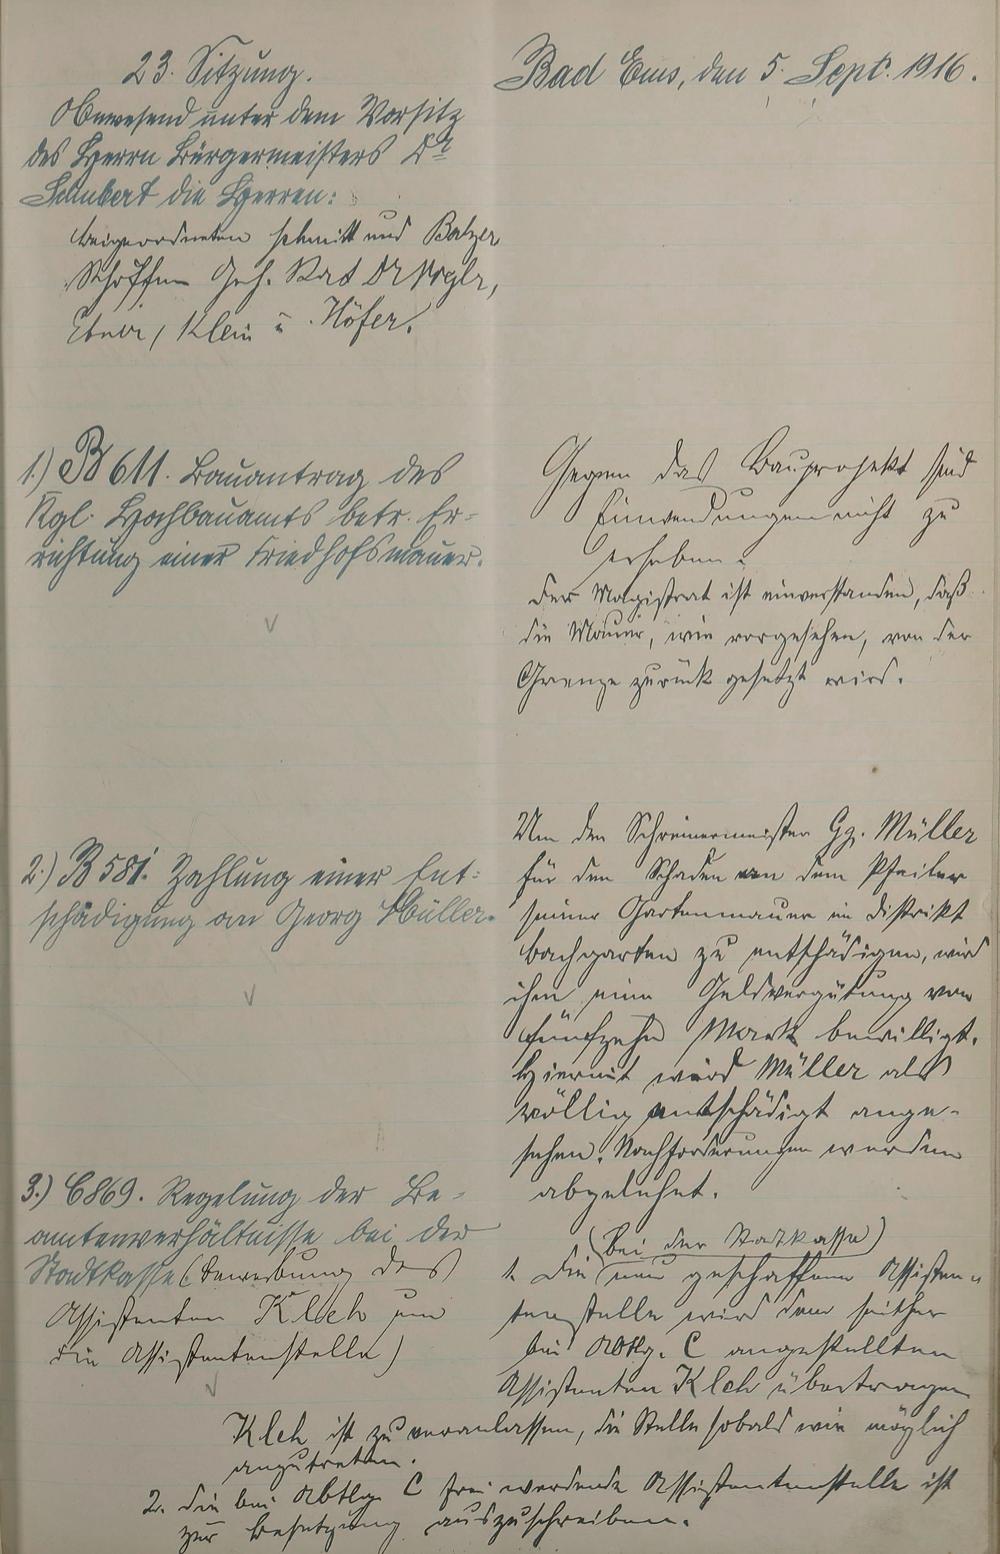 23. Sitzung.
Anwesend unter dem Vorsitz
des Herrn Bürgermeisters Dr
Schubert die Herren:
Beigeordneten Schmitt und Balzer
Schöffen Geh. Rat Dr Vogler,
Ebner, Klein u. Höfer.
Bad Ems, den 5. Sept. 1916.
1.) B 611. Bauantrag des
Kgl. Hochbauamts betr. Er-
richtung einer Friedhofsmauer.
Gegen das Bauprojekt sind
Einwendungen nicht zu
erheben.
Der Magistrat ist einverstanden, daß
die Mauer, wie vorgesehen, von der
Grenze zurück gesetzt wird.
2.) B 581. Zahlung einer Ent-
schädigung an Georg Müller.
Um den Schreinermeister Gg. Müller
für den Schaden an dem Pfeiler
seiner Gartenmauer im Distrikt
Bachgarten zu entschädigen, wird
ihm eine Geldvergütung von
fünfzehn Mark bewilligt.
Hiermit wird Müller als
völlig entschädigt ange-
sehen. Nachforderungen werden
abgelehnt.
3.) C 869. Regelung der Be-
amtenverhältnisse bei der
Stadtkasse (Bewerbung des
Assistenten um
die Assistentenstelle)
(bei der Stadtkasse)
1. Die neu geschaffene Assisten-
tenstelle wird dem seither
bei Abtlg. C angestellten
Assistenten übertragen
ist zu veranlassen, die Stelle sobald wie möglich
anzutreten.
2. Die bei Abtlg. C frei werdende Assistentenstelle ist
zur Besetzung auszuschreiben.